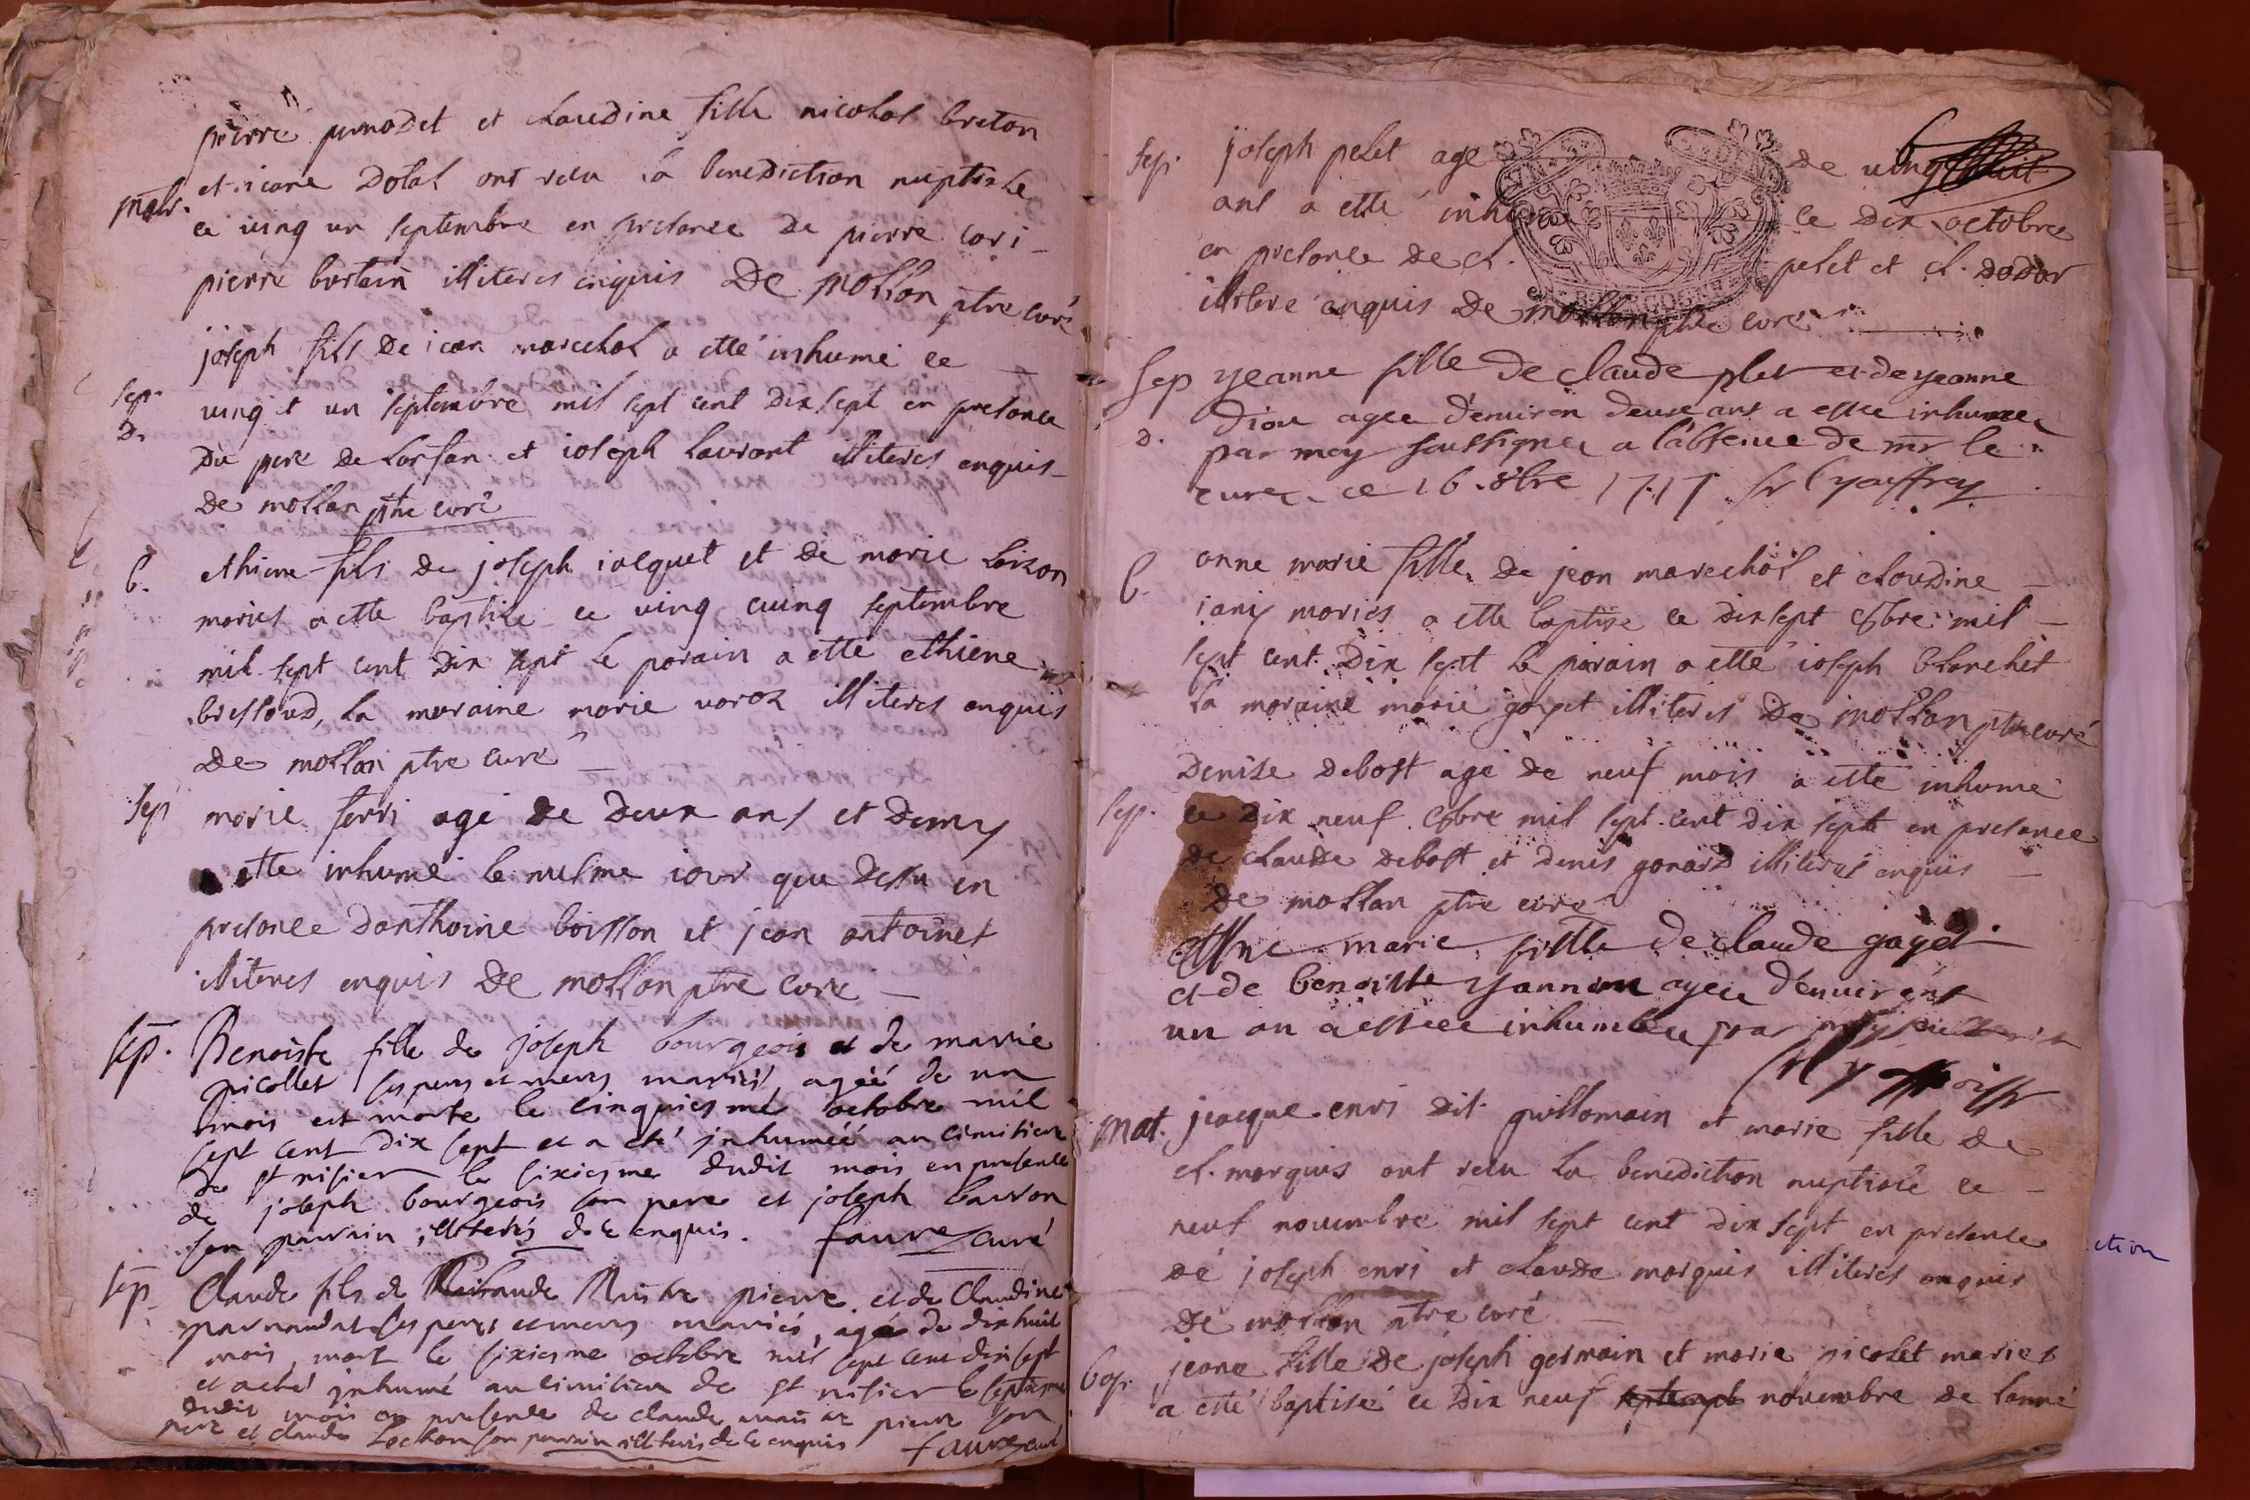 pierre pernodet et claudine fille nicolas breton
mar. et jeane Dolas ont recu la benediction nuptiale
ce ving un septembre en presance De pierre cori
pierre bertein illiteres enquis De mollan ptre curé
joseph fils De jean marechal a esté inhumé ce
sep. D. ving t un septembre mil sept cent Dix sept en presance
Du pere De lorfan et joseph laurant illiteres enquis
De mollan ptre curé
b. ethiene fils De joseph jacquet et De marie loison
maries a ette baptise ce ving cuinq septembre
mil sept cent Dix sept le parain a ette ethiene
bressoud, la maraine marie varoz illiteres enquis
De mollan ptre curé
sep marie ferri agé De Deux ans et Demy
a ette inhumé le mesme jour que Dessu en
presance Danthoine boisson et jean antoinet
illiteres enquis De mollan ptre curé
sep. Benoiste fille de joseph bourgeois et de marie
picollet ses pere et mere mariés, agéé de un
mois est morte le cinquiesme octobre mil
sept cent dix sept et a eté jnhuméé au cimitiere
de st nisier le sixiesme dudit mois en presence
de joseph bourgeois son pere et joseph bauron
son parrain illiterés de ce enquis. faure curé
sep. Claude fils de Claude pierre et de Claudine
parnaudat ses peres et meres mariés, agé de dix huit
mois, mort le sixiesme octobre mil sept cent dix sept
et a eté jnhumé au cimitiere de st nisier le septiesme
dudit mois en presence de claude pierre son
pere et claude Lochon son parrain illiterés de ce enquis faure curé
sep. joseph pelet agé De ving huit
ans a esté inhumé ce Dix octobre
en presance De cl. pelet et cl. Dodat
enquis De mollan ptre curé
sep yeanne fille De claude plet et de yeanne
D. Diou agee d'enuiron deux ans a estee inhumee
par moy soussigne a l'absence de mr le
curé ce 16 8bre 1717 yoffray
b. anne marie fille De jean marechal et cloudine
jani maries a ette baptise ce Dix sept 8bre mil
sept cent Dix sept le parain a ette joseph blanchet
la maraine marie goyet illiteres De mollan ptre curé
Denise Debost agé De neuf mois a ette inhumé
sep. ce Dix neuf 8bre mil sept cent dix sept en presance
De claude Debost et Denis gonard illiteres enquis
De mollan ptre curé
Anne marie fille de claude gayet
et de benoitte yannin agee d'enuiront
un an a estee inhumee par moy
mat. jacque enri dit guillomain et marie fille De
cl. marquis ont recu la benediction nuptiale ce
neuf nouembre mil sept cent Dix sept en presance
De joseph enri et claude marquis illiteres enquis
De mollan ptre curé
bap. jeane fille De joseph germain et marie nicolet maries
a esté baptisé ce Dix neuf nouembre De lanné
ction